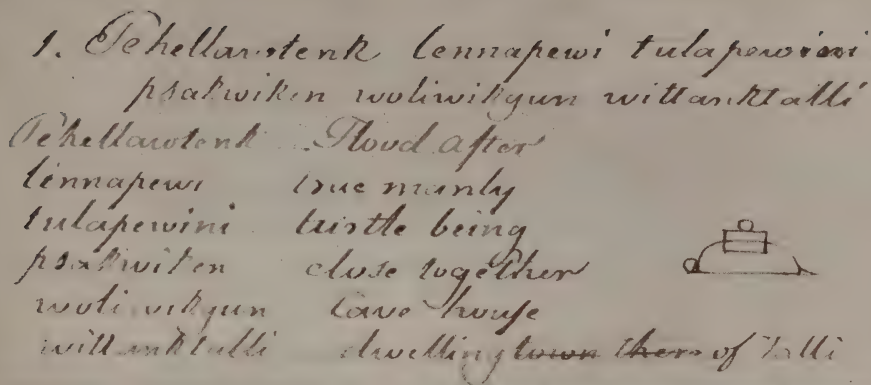 1. Pehellawtenk lennapewi tulapewini
psakwiken woliwikgun wittanktalli
Pehellawtenk Flood after
lennapewi true manly
tulapewini turtle being
psakwiken close together
woliwikgun Cave house
wittanktalli dwelling town there of Talli